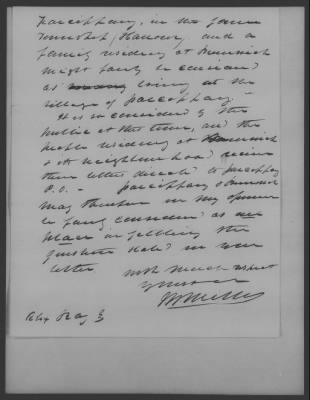 Parsippany, in the same
township (Hanover) and a
family residing at Dunnwich
might fairly be considered
as living at the
village of Parsippany
It is so considered by the
public at this time, and the
people residing at
& its neighborhood receive
their letters directed to Parsippany
P.O. - Parsippany &
may therefore in my opinion
be fairly considered as one
place in fulfilling the
question stated in your
letter
with much respect
yours &c